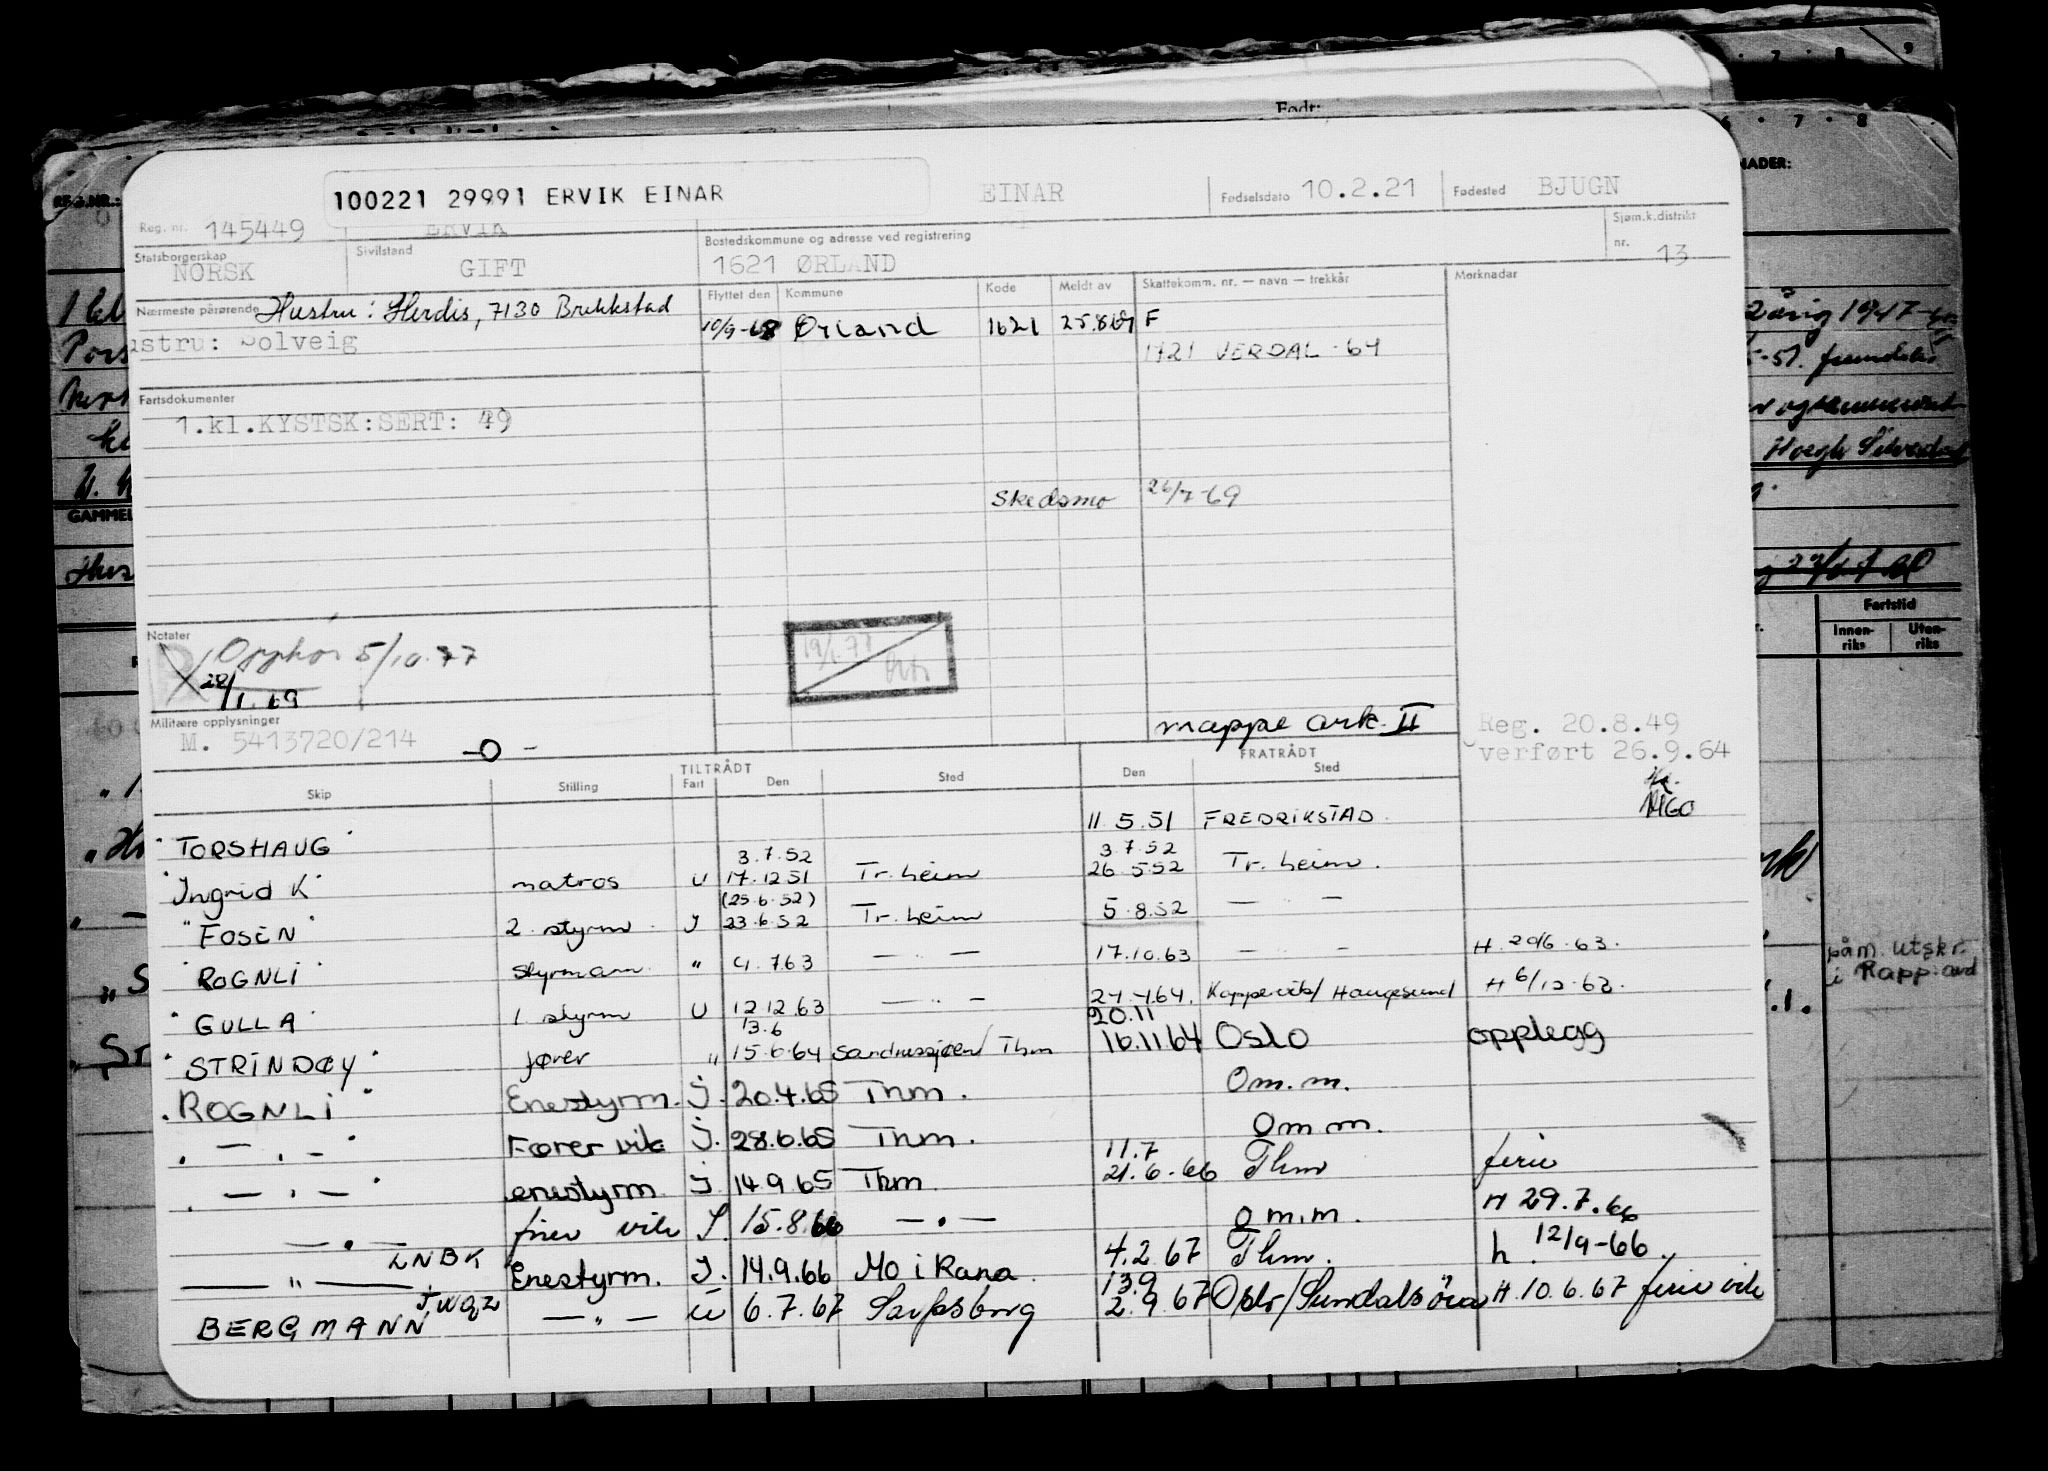 Født:
100221 29991 ERVIK EINAR
EINAR
Fødselsdato 10.2.21
Fødested BJUGN
Reg. nr. 145449
ERVIK
Bostedskommune og adresse ved registrering
1621 ØRLAND
Sjøm.k.distrikt
nr. 13
Statsborgerskap
NORSK
Sivilstand
GIFT
Nærmeste pårørende Hustru: Herdis, 7130 Brekkstad
ustru: Solveig
Flyttet den Kommune Kode Meldt av Skattekomm. nr. — navn — trekkår Merknader
10/9-68 Ørland 1621 25.8.69 F
1721 VERDAL - 64
Fartsdokumenter
1.kl.KYSTSK:SERT: 49
Skedsmo 26/7-69
Notater
Opphør 5/10.77
28/1.69
19/1.77
Militære opplysninger
M. 5413720/214 -O-
mappe ark. II
Reg. 20.8.49
verført 26.9.64
TILTRÅDT FRATRÅDT
Skip Stilling Fart Den Sted Den Sted
"TORSHAUG" 11.5.51 FREDRIKSTAD.
3.7.52 3.7.52
"Ingrid K" matros U 17.12.51 Tr.heim 26.5.52 Tr.heim.
(25.6.52)
"FOSEN" 2. styrm. J 23.6.52 Tr.heim 5.8.52 — " —
"ROGNLI" styrmann " 4.7.63 — " — 17.10.63 — " — H. 20/6.63.
"GULLA" 1 styrm U 12.12.63 — " — 24.4.64. Koppervik/Haugesund H 6/12.63.
13.6 20.11
"STRINDØY" fører " 15.6.64 Sandnessjøen/Thm 16.11.64 Oslo opplegg
"ROGNLI" Enestyrm. J. 20.4.65 Thm. Om.m.
" — " — " Fører vik J. 28.6.65 Thm. Om m.
11.7
" — " — " enestyrm. J. 14.9.65 Thm. 21.6.66 Thm ferie
— " — fører vik J. 15.8.66 — " — om.m. H 29.7.66
— " — LNBK Enestyrm. J. 14.9.66 Mo i Rana. 4.2.67 Thm. h. 12/9-66.
13.9
BERGMANN — " — U 6.7.67 Sarpsborg 2.9.67 Oslo/Sundalsöra H.10.6.67 ferie vik
Fartstid
Innen-riks Uten-riks
påm. utskr.
i Rapp.